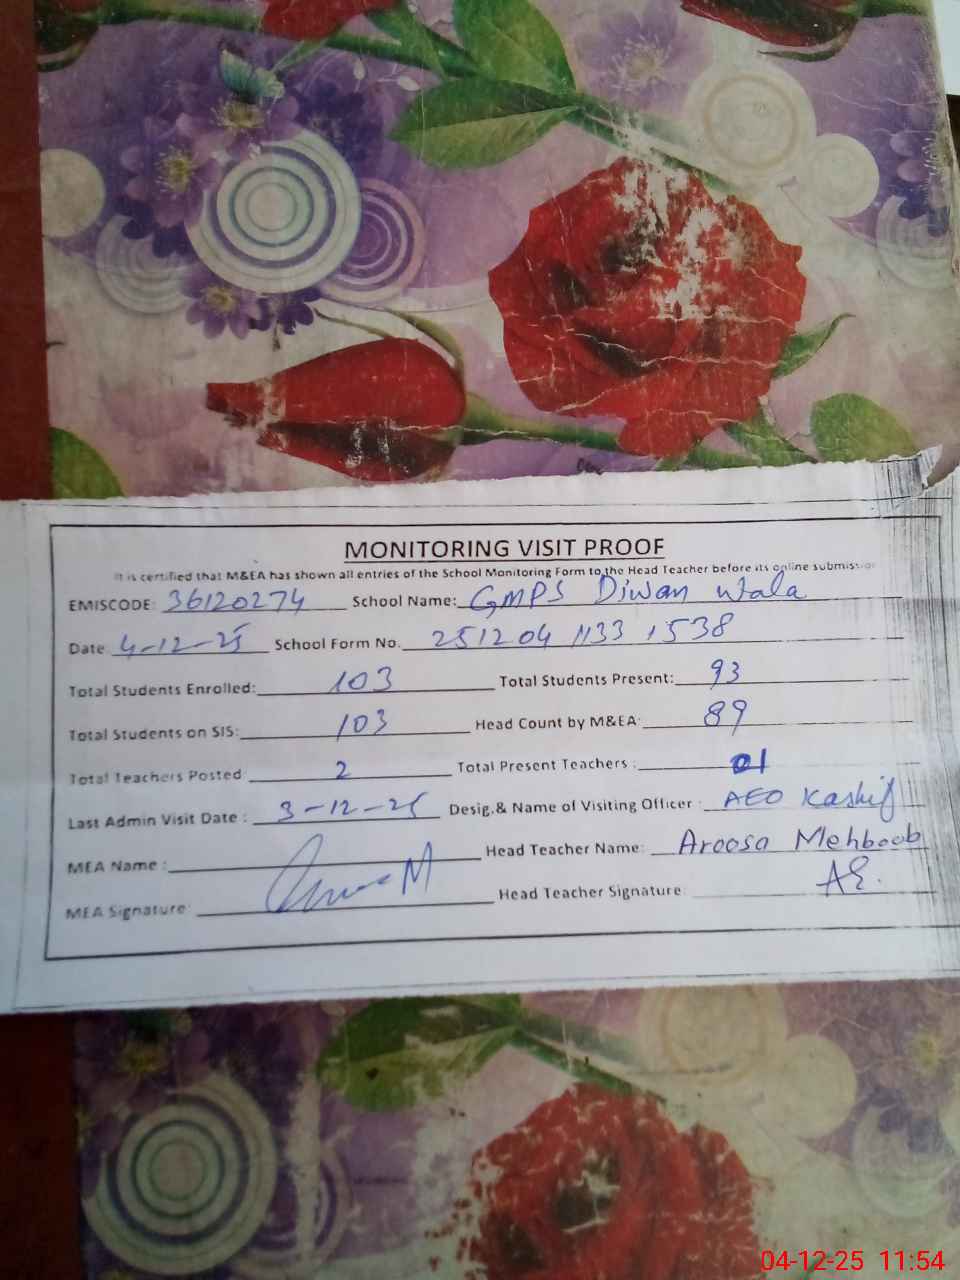 MONITORING VISIT PROOF
It is certified that M&EA has shown all entries of the School Monitoring Form to the Head Teacher before its online submission
EMISCODE: 36120274 School Name: GMPS Diwan wala
Date 4-12-25 School Form No. 251204 1133 1538
Total Students Enrolled: 103 Total Students Present: 93
Total Students on SIS: 103 Head Count by M&EA: 89
Total Teachers Posted 2 Total Present Teachers : 01
Last Admin Visit Date : 3-12-25 Desig.& Name of Visiting Officer : AEO Kashif
MEA Name : Head Teacher Name: Aroosa Mehboob
MEA Signature: Head Teacher Signature
04-12-25 11:54